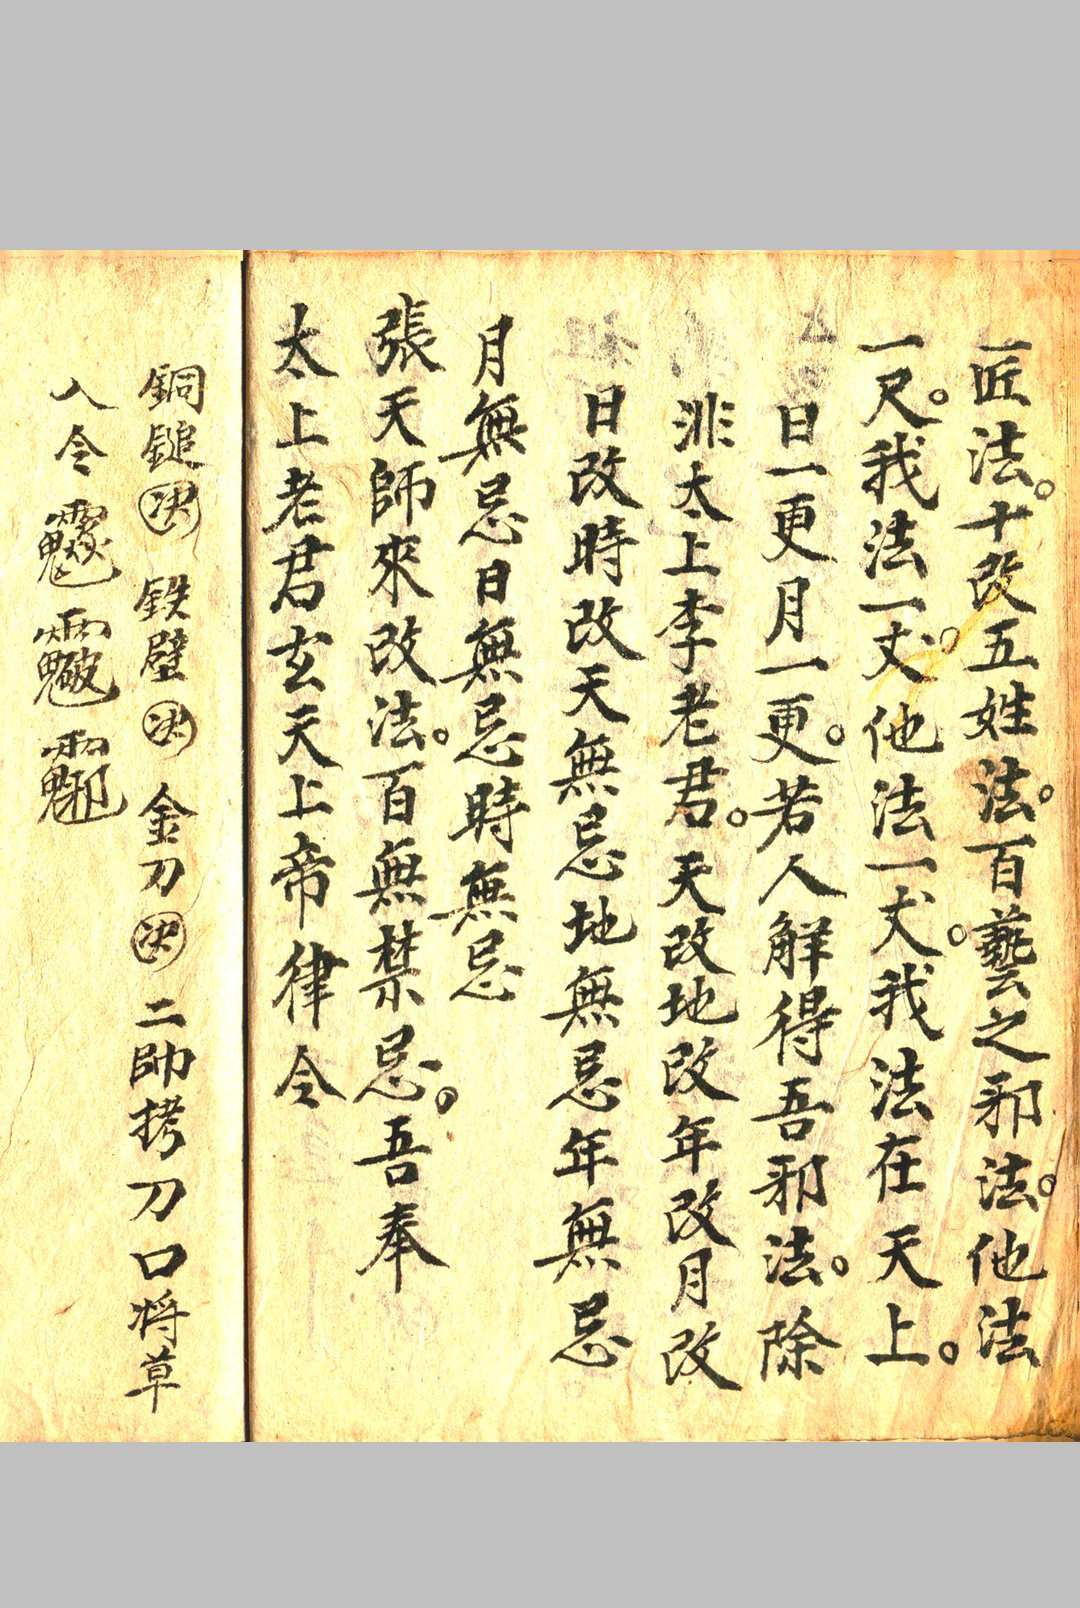 匠法。十改五姓法。百藝之邪法。他法
一尺。我法一丈。他法一丈。我法在天上。
日一更月一更。若人解得吾邪法。除
非太上李老君。天改地改年改月改
日改時改天無忌地無忌年無忌
月無忌日無忌時無忌
張天師來改法。百無禁忌。吾奉
太上老君玄天上帝律令
銅鎚决 鉄壁决 金刀决 二帥拷刀口将草
入令